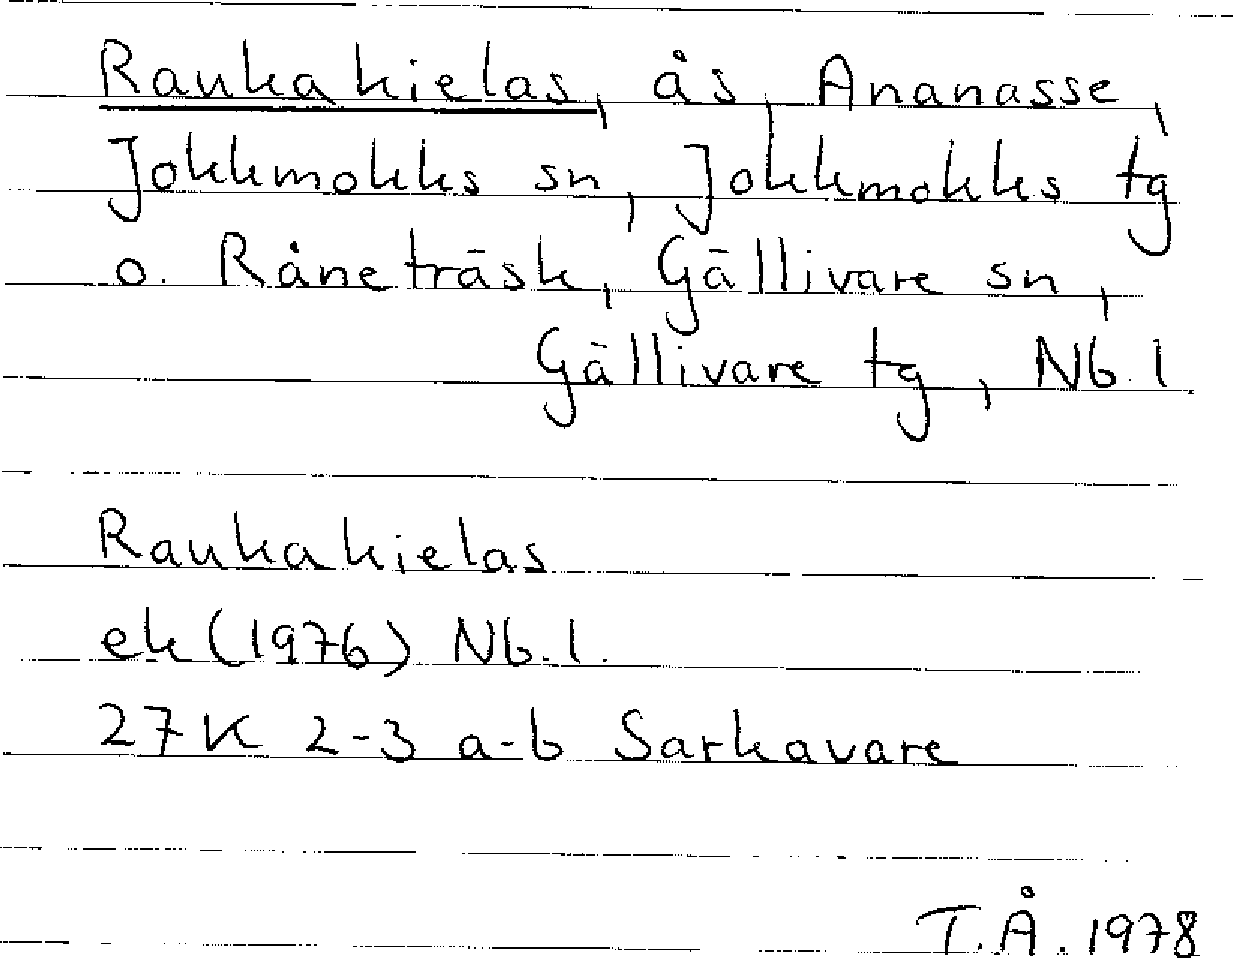 Raukakielas, ås, Ananasse,
Jokkmokks sn, Jokkmokks tg
o. Råneträsk, Gällivare sn,
Gällivare tg, Nb. l
Raukakielas
ek (1976) Nb. l.
27K 2-3 a-b Sarkavare
T.Å. 1978